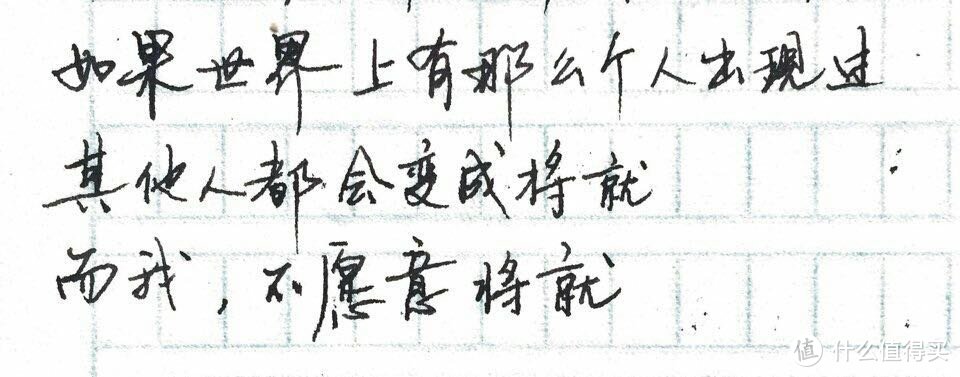 如果世界上有那么个人出现过
其他人都会变成将就
而我,不愿意将就
值 什么值得买